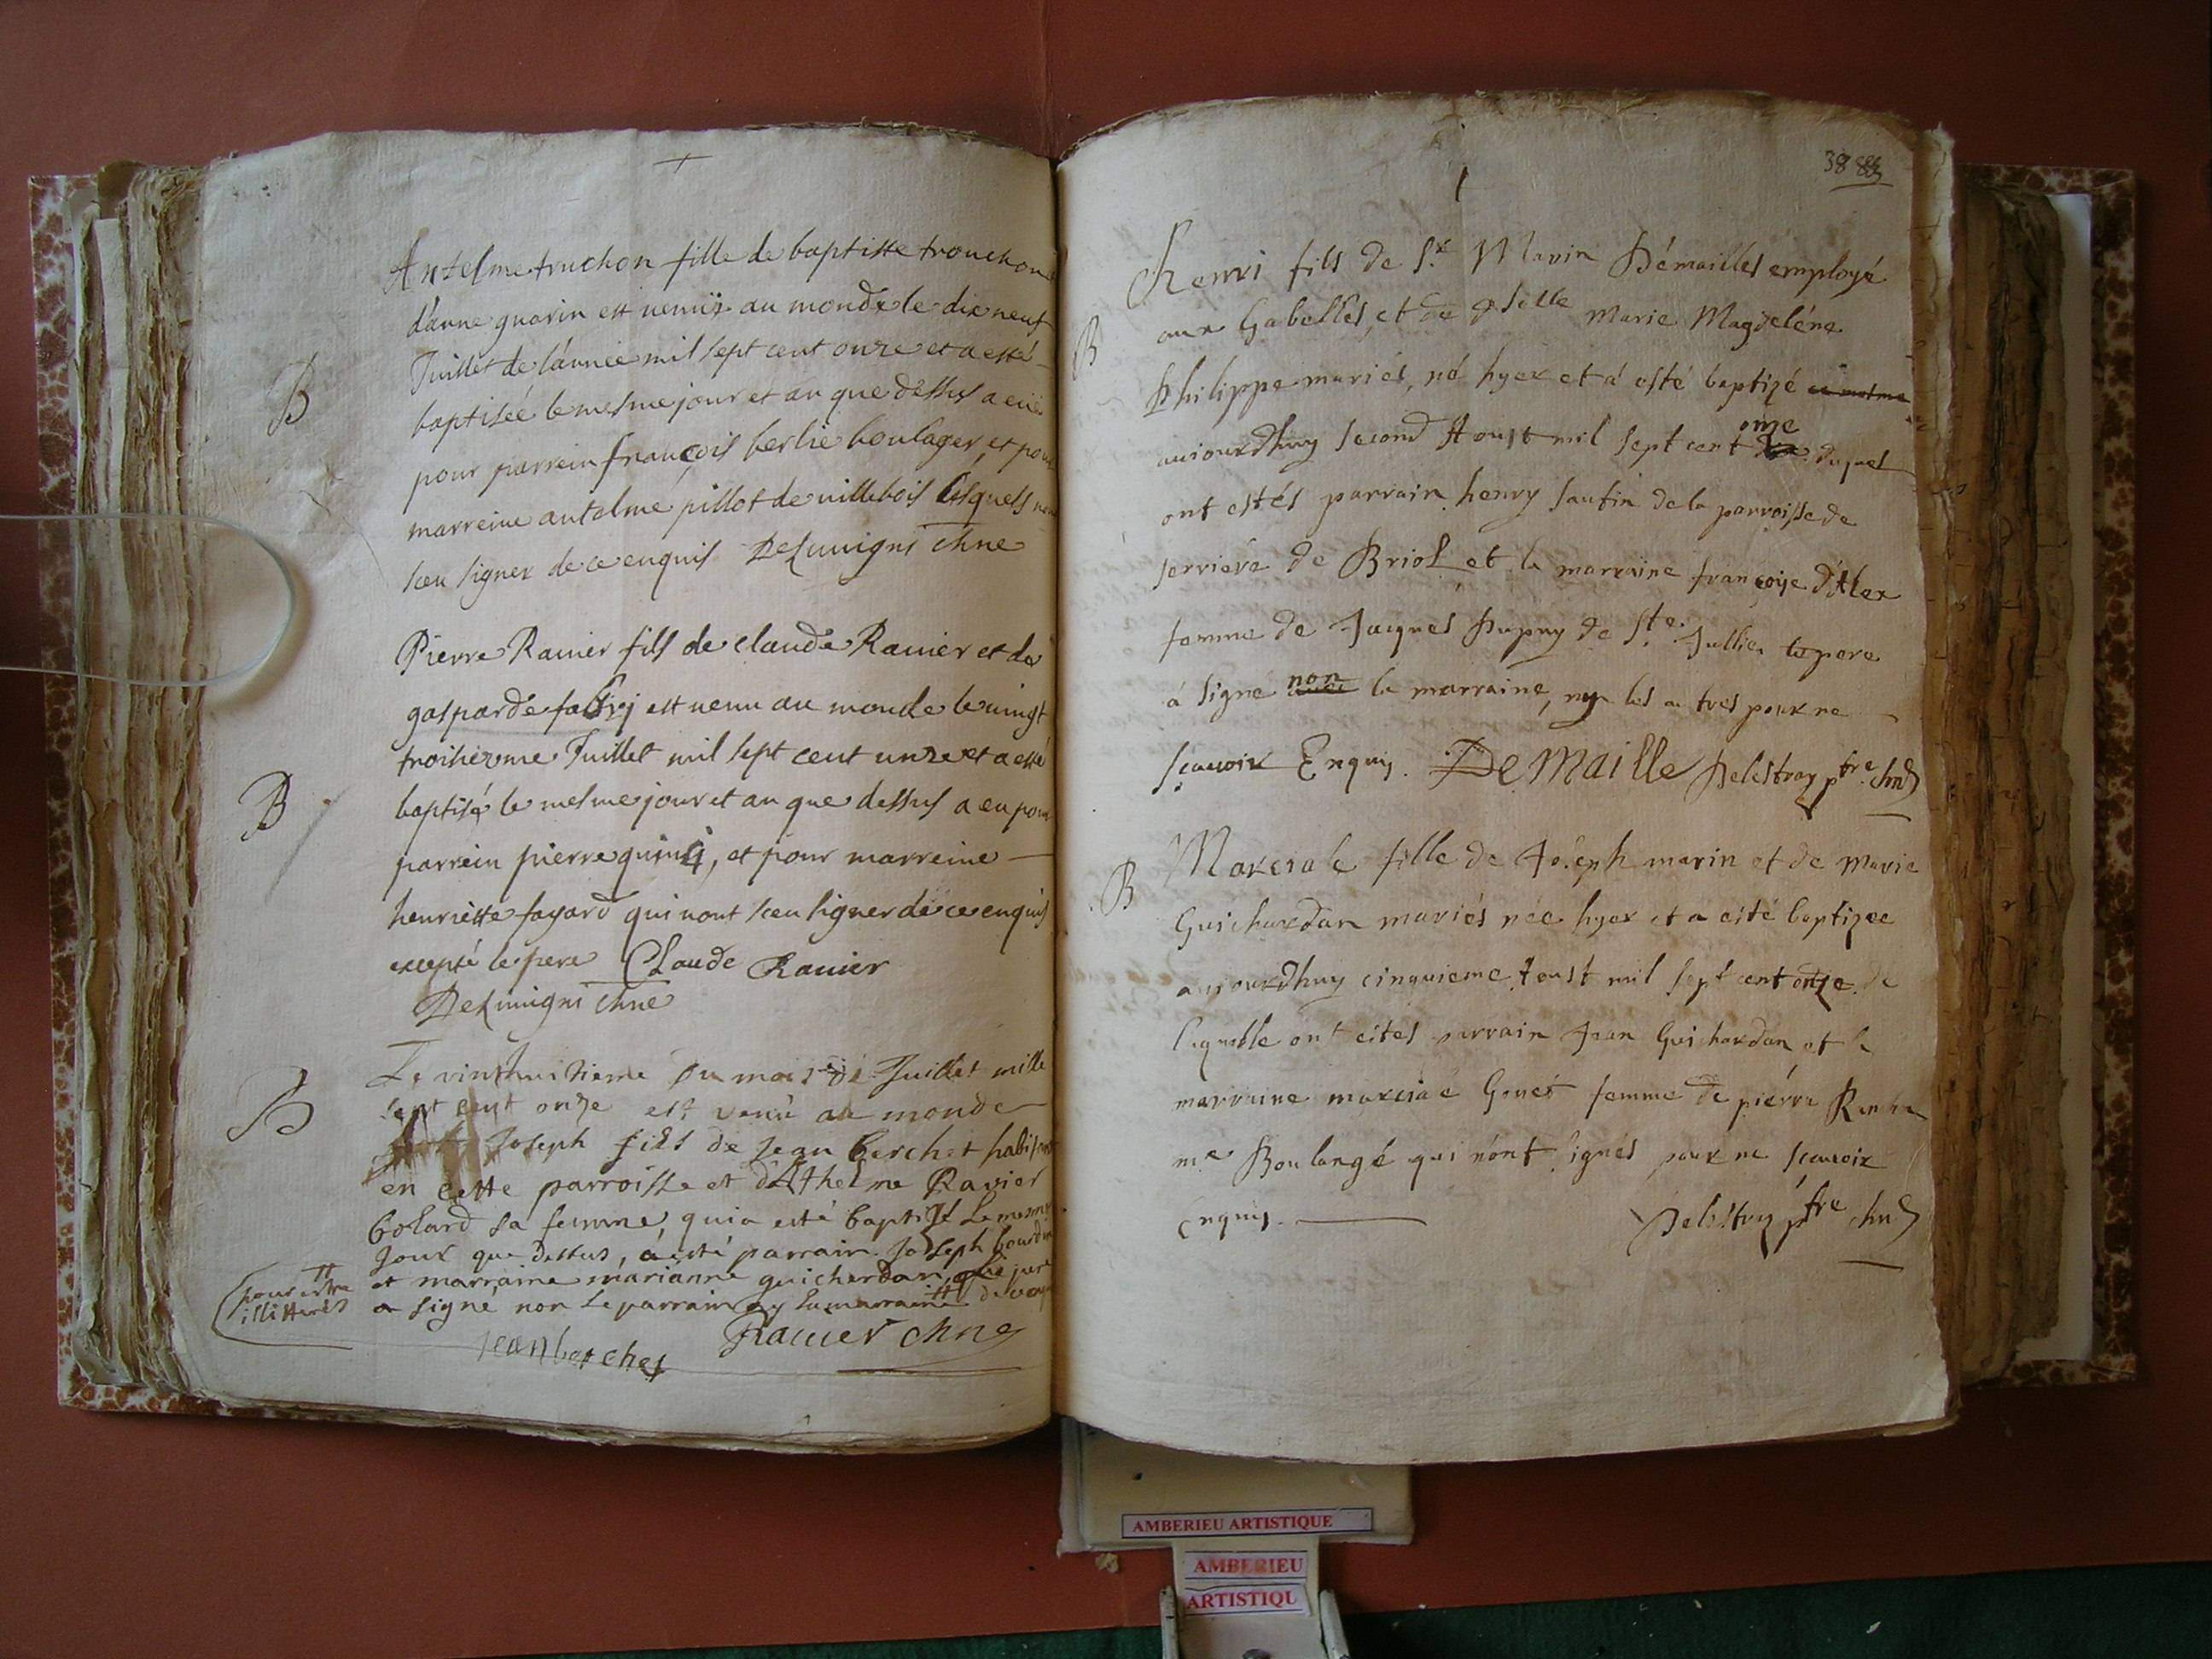 Antelme truchon fille de baptiste trouchon
d'anne guarin est venuë au monde le dix neuf
Juillet de l'année mil sept cent onze et a esté
B
baptisée le mesme jour et an que dessus a eu
pour parrein françois berlie boulager, et pour
marreine antelme pillot de villebois lesquels
sceu signer de ce enquis Deluvigni chne
Pierre Ravier fils de claude Ravier et de
gasparde fabri est venu au monde le vingt
troisiezme Juillet mil sept cent unze et a esté
B
baptisé le mesme jour et an que dessus a eu pour
parrein pierre, et pour marreine
henriette fayard qui nont sceu signer de ce enquis
excepté le pere Claude Ravier
Deluvigni chne
Le vint huitieme du mois de Juillet mille
B
sept cent onze est venu au monde
Joseph fils de Jean berchet habitant
en cette parroisse et d'Athelme Ravier
bolard sa femme, qui a esté baptizé le mesme
Jour que dessus, a esté parrain Joseph bourdin
et marraine marianne guicherdan, pere
pour estre
illitterés
a signé non le parrain ny la marraine de
Jean berchet Ravier chne
38
Henri fils de Sr Marin Démailles employé
B
aux Gabelles, et de dselle Marie Magdeléne
Philippe mariés, né hyer et á esté baptizé ce mesme
aujourdhuy second Aoust mil sept cent onze duquel
ont estés parrain henry sautin de la parroisse de
serriere de Briol et la marraine françoise d'Alex
femme de Jacques Dupuy de Ste. Jullie le pere
á signé non la marraine, ny les autres pour ne
scavoir Enquis. DeMaille Delestray ptre chne
B
Marciale fille de Joseph marin et de Marie
Guichardan mariés née hyer et a esté baptizee
aujourdhuy cinquieme Aoust mil sept cent onze de
laquelle ont estes parrain Jean Guichardan et la
marraine marciale Gouet femme de piérre
me Boulangé qui nont signés pour ne scavoir
enquis. Delestray ptre chne
AMBERIEU ARTISTIQUE
AMBERIEU
ARTISTIQU